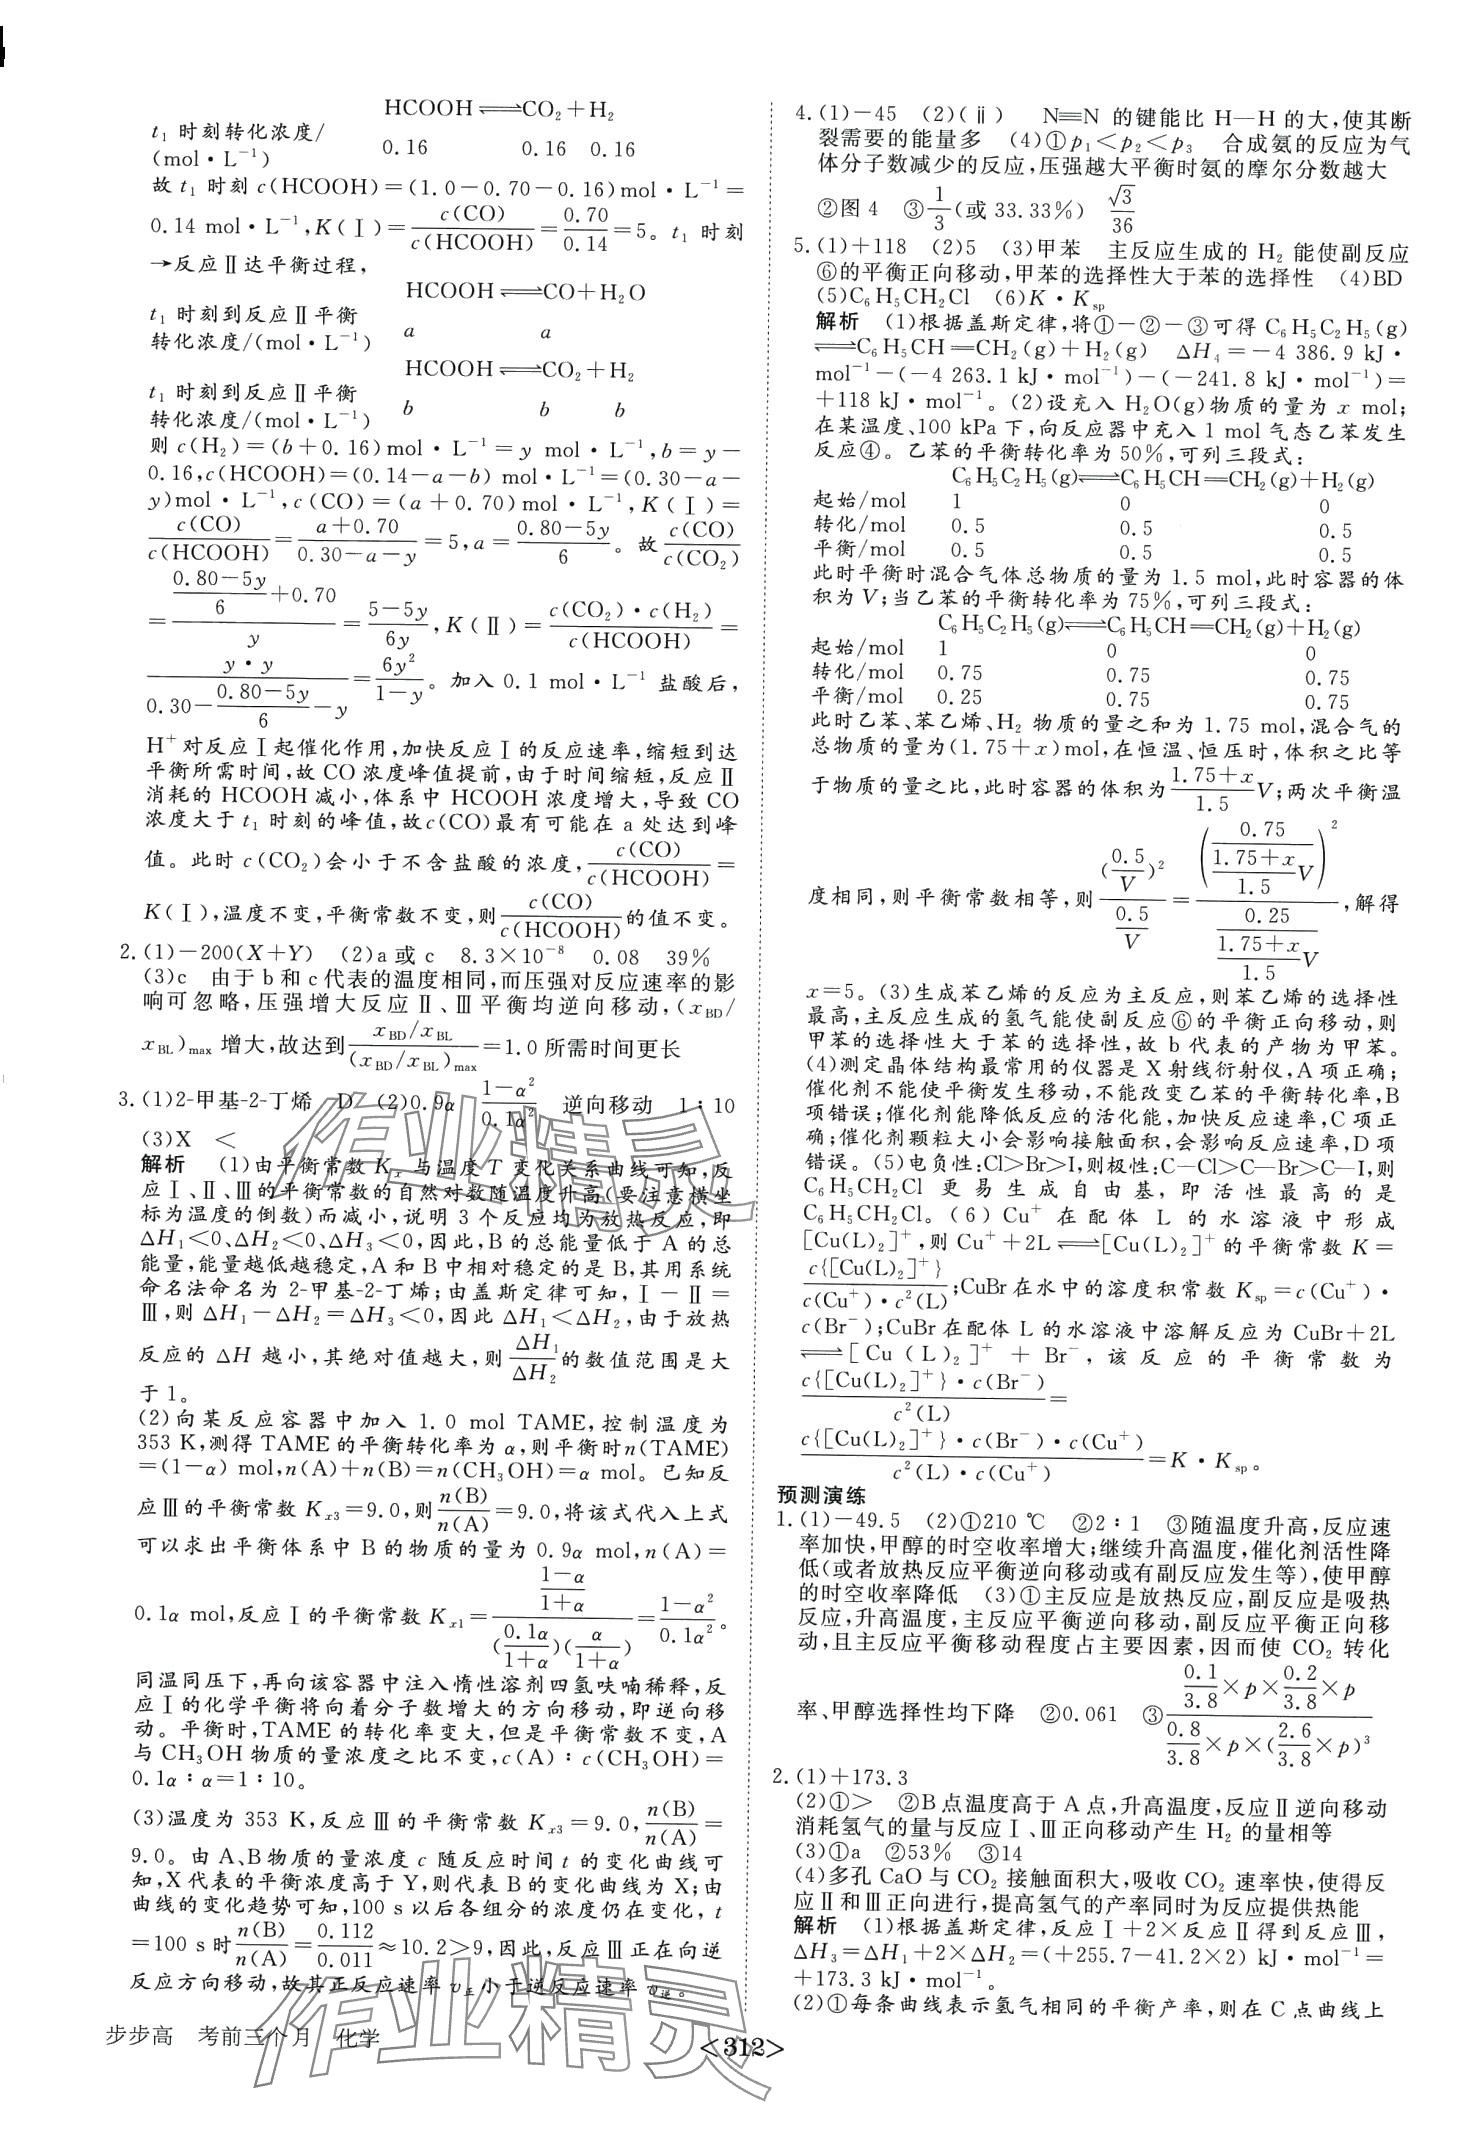 HCOOH⇌CO₂+H₂
t₁ 时刻转化浓度/
(mol·L⁻¹) 0.16 0.16 0.16
故 t₁ 时刻 c(HCOOH)=(1.0-0.70-0.16)mol·L⁻¹=
0.14 mol·L⁻¹,K(Ⅰ)=c(CO)/c(HCOOH)=0.70/0.14=5。t₁ 时刻
→反应Ⅱ达平衡过程,
HCOOH⇌CO+H₂O
t₁ 时刻到反应Ⅱ平衡
转化浓度/(mol·L⁻¹) a a
HCOOH⇌CO₂+H₂
t₁ 时刻到反应Ⅱ平衡
转化浓度/(mol·L⁻¹) b b b
则 c(H₂)=(b+0.16)mol·L⁻¹=y mol·L⁻¹,b=y-
0.16,c(HCOOH)=(0.14-a-b) mol·L⁻¹=(0.30-a-
y)mol·L⁻¹,c(CO)=(a+0.70)mol·L⁻¹,K(Ⅰ)=
c(CO)/c(HCOOH)=(a+0.70)/(0.30-a-y)=5,a=(0.80-5y)/6。故c(CO)/c(CO₂)
=((0.80-5y)/6+0.70)/y=(5-5y)/6y,K(Ⅱ)=c(CO₂)·c(H₂)/c(HCOOH)=
(y·y)/(0.30-(0.80-5y)/6-y)=6y²/(1-y)。加入 0.1 mol·L⁻¹ 盐酸后,
H⁺对反应Ⅰ起催化作用,加快反应Ⅰ的反应速率,缩短到达
平衡所需时间,故 CO 浓度峰值提前,由于时间缩短,反应Ⅱ
消耗的 HCOOH 减小,体系中 HCOOH 浓度增大,导致 CO
浓度大于 t₁ 时刻的峰值,故c(CO)最有可能在 a 处达到峰
值。此时 c(CO₂)会小于不含盐酸的浓度,c(CO)/c(HCOOH)=
K(Ⅰ),温度不变,平衡常数不变,则c(CO)/c(HCOOH)的值不变。
2.(1)-200(X+Y) (2)a或c 8.3×10⁻⁸ 0.08 39%
(3)c 由于b和c代表的温度相同,而压强对反应速率的影
响可忽略,压强增大反应Ⅱ、Ⅲ平衡均逆向移动,(x_BD/
x_BL)_max 增大,故达到(x_BD/x_BL)/(x_BD/x_BL)_max=1.0 所需时间更长
3.(1)2-甲基-2-丁烯 D (2)0.9α (1-α²)/0.1α² 逆向移动 1∶10
(3)X <
解析 (1)由平衡常数 Kₓ 与温度 T 变化关系曲线可知,反
应Ⅰ、Ⅱ、Ⅲ的平衡常数的自然对数随温度升高(要注意横坐
标为温度的倒数)而减小,说明 3 个反应均为放热反应,即
ΔH₁<0、ΔH₂<0、ΔH₃<0,因此,B的总能量低于 A 的总
能量,能量越低越稳定,A 和 B 中相对稳定的是 B,其用系统
命名法命名为 2-甲基-2-丁烯;由盖斯定律可知,Ⅰ-Ⅱ=
Ⅲ,则 ΔH₁-ΔH₂=ΔH₃<0,因此 ΔH₁<ΔH₂,由于放热
反应的 ΔH 越小,其绝对值越大,则ΔH₁/ΔH₂的数值范围是大
于1。
(2)向某反应容器中加入 1.0 mol TAME,控制温度为
353 K,测得 TAME 的平衡转化率为 α,则平衡时n(TAME)
=(1-α) mol,n(A)+n(B)=n(CH₃OH)=α mol。已知反
应Ⅲ的平衡常数 Kₓ₃=9.0,则n(B)/n(A)=9.0,将该式代入上式
可以求出平衡体系中 B 的物质的量为 0.9α mol,n(A)=
0.1α mol,反应Ⅰ的平衡常数 Kₓ₁=((1-α)/(1+α))/((0.1α/(1+α))(α/(1+α)))=(1-α²)/0.1α²。
同温同压下,再向该容器中注入惰性溶剂四氢呋喃稀释,反
应Ⅰ的化学平衡将向着分子数增大的方向移动,即逆向移
动。平衡时,TAME 的转化率变大,但是平衡常数不变,A
与 CH₃OH 物质的量浓度之比不变,c(A)∶c(CH₃OH)=
0.1α∶α=1∶10。
(3)温度为 353 K,反应Ⅲ的平衡常数 Kₓ₃=9.0,n(B)/n(A)=
9.0。由 A、B物质的量浓度 c 随反应时间 t 的变化曲线可
知,X代表的平衡浓度高于 Y,则代表 B 的变化曲线为 X;由
曲线的变化趋势可知,100 s以后各组分的浓度仍在变化,t
=100 s时n(B)/n(A)=0.112/0.011≈10.2>9,因此,反应Ⅲ正在向逆
反应方向移动,故其正反应速率 v正小于逆反应速率 v逆。
4.(1)-45 (2)(ⅱ) N≡N 的键能比 H—H 的大,使其断
裂需要的能量多 (4)①p₁<p₂<p₃ 合成氨的反应为气
体分子数减少的反应,压强越大平衡时氨的摩尔分数越大
②图 4 ③1/3(或 33.33%) √3/36
5.(1)+118 (2)5 (3)甲苯 主反应生成的 H₂ 能使副反应
⑥的平衡正向移动,甲苯的选择性大于苯的选择性 (4)BD
(5)C₆H₅CH₂Cl (6)K·K_sp
解析 (1)根据盖斯定律,将①-②-③可得 C₆H₅C₂H₅(g)
⇌C₆H₅CH=CH₂(g)+H₂(g) ΔH₄=-4 386.9 kJ·
mol⁻¹-(-4 263.1 kJ·mol⁻¹)-(-241.8 kJ·mol⁻¹)=
+118 kJ·mol⁻¹。(2)设充入 H₂O(g)物质的量为 x mol;
在某温度、100 kPa下,向反应器中充入 1 mol气态乙苯发生
反应④。乙苯的平衡转化率为 50%,可列三段式:
C₆H₅C₂H₅(g)⇌C₆H₅CH=CH₂(g)+H₂(g)
起始/mol 1 0 0
转化/mol 0.5 0.5 0.5
平衡/mol 0.5 0.5 0.5
此时平衡时混合气体总物质的量为 1.5 mol,此时容器的体
积为 V;当乙苯的平衡转化率为 75%,可列三段式:
C₆H₅C₂H₅(g)⇌C₆H₅CH=CH₂(g)+H₂(g)
起始/mol 1 0 0
转化/mol 0.75 0.75 0.75
平衡/mol 0.25 0.75 0.75
此时乙苯、苯乙烯、H₂ 物质的量之和为 1.75 mol,混合气的
总物质的量为(1.75+x)mol,在恒温、恒压时,体积之比等
于物质的量之比,此时容器的体积为(1.75+x)/1.5 V;两次平衡温
度相同,则平衡常数相等,则(0.5/V)²/(0.5/V)=(0.75/((1.75+x)/1.5 V))²/(0.25/((1.75+x)/1.5 V)),解得
x=5。(3)生成苯乙烯的反应为主反应,则苯乙烯的选择性
最高,主反应生成的氢气能使副反应⑥的平衡正向移动,则
甲苯的选择性大于苯的选择性,故 b 代表的产物为甲苯。
(4)测定晶体结构最常用的仪器是 X 射线衍射仪,A 项正确;
催化剂不能使平衡发生移动,不能改变乙苯的平衡转化率,B
项错误;催化剂能降低反应的活化能,加快反应速率,C 项正
确;催化剂颗粒大小会影响接触面积,会影响反应速率,D 项
错误。(5)电负性:Cl>Br>I,则极性:C—Cl>C—Br>C—I,则
C₆H₅CH₂Cl 更易生成自由基,即活性最高的是
C₆H₅CH₂Cl。(6)Cu⁺ 在配体 L 的水溶液中形成
[Cu(L)₂]⁺,则 Cu⁺+2L⇌[Cu(L)₂]⁺的平衡常数 K=
c{[Cu(L)₂]⁺}/(c(Cu⁺)·c²(L));CuBr在水中的溶度积常数 K_sp=c(Cu⁺)·
c(Br⁻);CuBr在配体 L 的水溶液中溶解反应为 CuBr+2L
⇌[Cu(L)₂]⁺+Br⁻,该反应的平衡常数为
c{[Cu(L)₂]⁺}·c(Br⁻)/c²(L)=
c{[Cu(L)₂]⁺}·c(Br⁻)·c(Cu⁺)/(c²(L)·c(Cu⁺))=K·K_sp。
预测演练
1.(1)-49.5 (2)①210 ℃ ②2∶1 ③随温度升高,反应速
率加快,甲醇的时空收率增大;继续升高温度,催化剂活性降
低(或者放热反应平衡逆向移动或有副反应发生等),使甲醇
的时空收率降低 (3)①主反应是放热反应,副反应是吸热
反应,升高温度,主反应平衡逆向移动,副反应平衡正向移
动,且主反应平衡移动程度占主要因素,因而使 CO₂ 转化
率、甲醇选择性均下降 ②0.061 ③(0.1/3.8×p×0.2/3.8×p)/(0.8/3.8×p×(2.6/3.8×p)³)
2.(1)+173.3
(2)①> ②B点温度高于 A 点,升高温度,反应Ⅱ逆向移动
消耗氢气的量与反应Ⅰ、Ⅲ正向移动产生 H₂ 的量相等
(3)①a ②53% ③14
(4)多孔 CaO 与 CO₂ 接触面积大,吸收 CO₂ 速率快,使得反
应Ⅱ和Ⅲ正向进行,提高氢气的产率同时为反应提供热能
解析 (1)根据盖斯定律,反应Ⅰ+2×反应Ⅱ得到反应Ⅲ,
ΔH₃=ΔH₁+2×ΔH₂=(+255.7-41.2×2) kJ·mol⁻¹=
+173.3 kJ·mol⁻¹。
(2)①每条曲线表示氢气相同的平衡产率,则在 C 点曲线上
步步高 考前三个月 化学
<312>
作业精灵
作业精灵